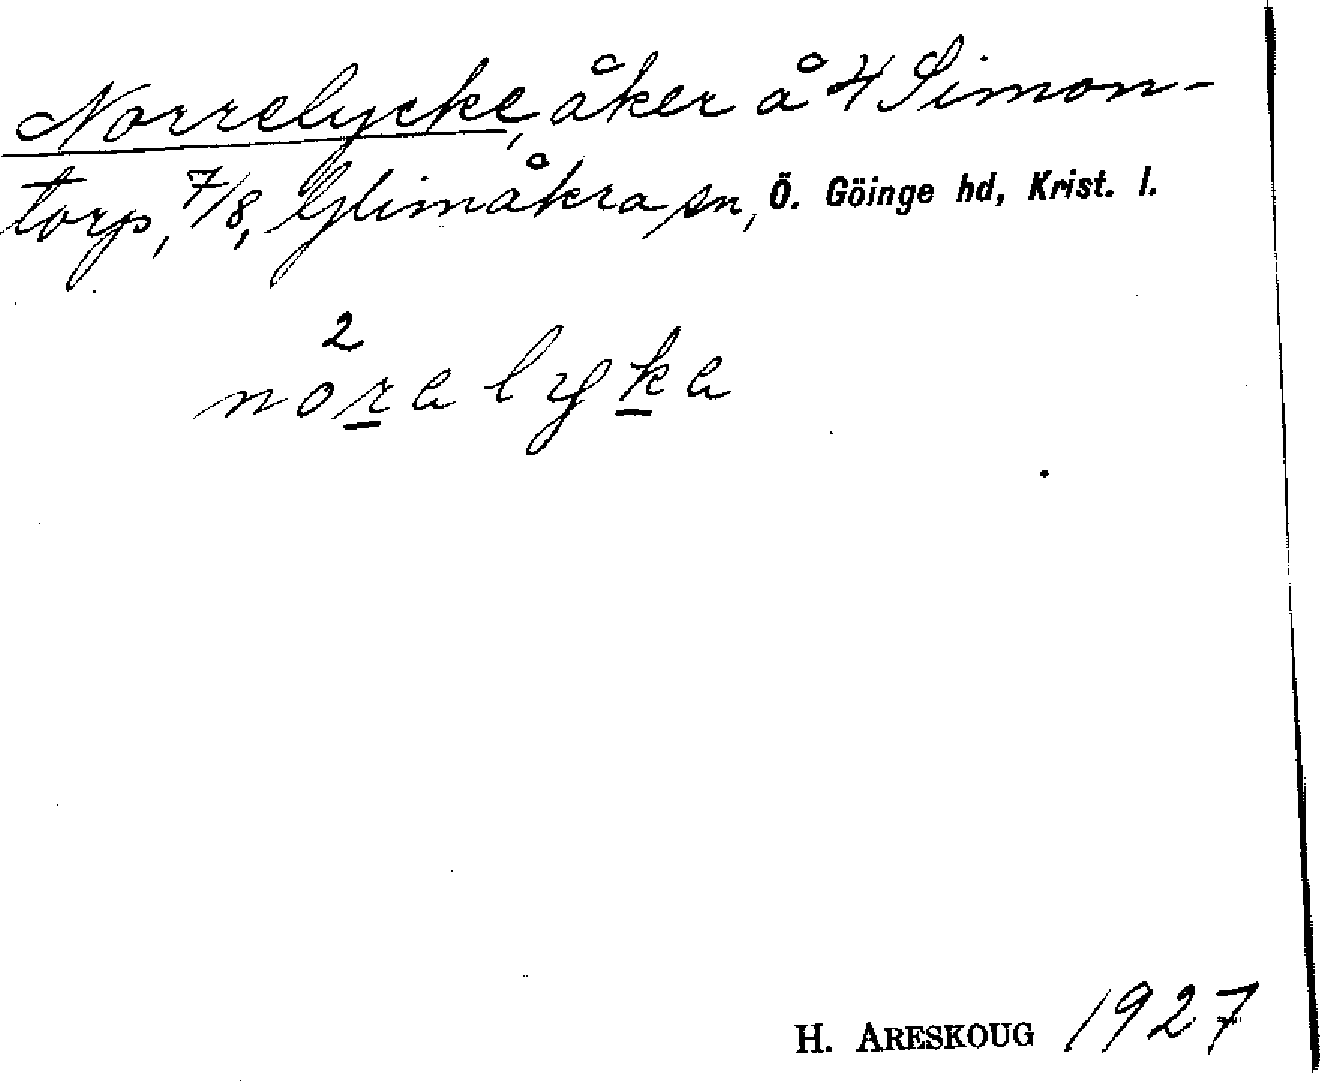 Norrelycke, åker å 4 Simon-
torp, 7/8, Glimåkra sn, Ö. Göinge hd, Krist. l.
2
noralyka
H. ARESKOUG 1927